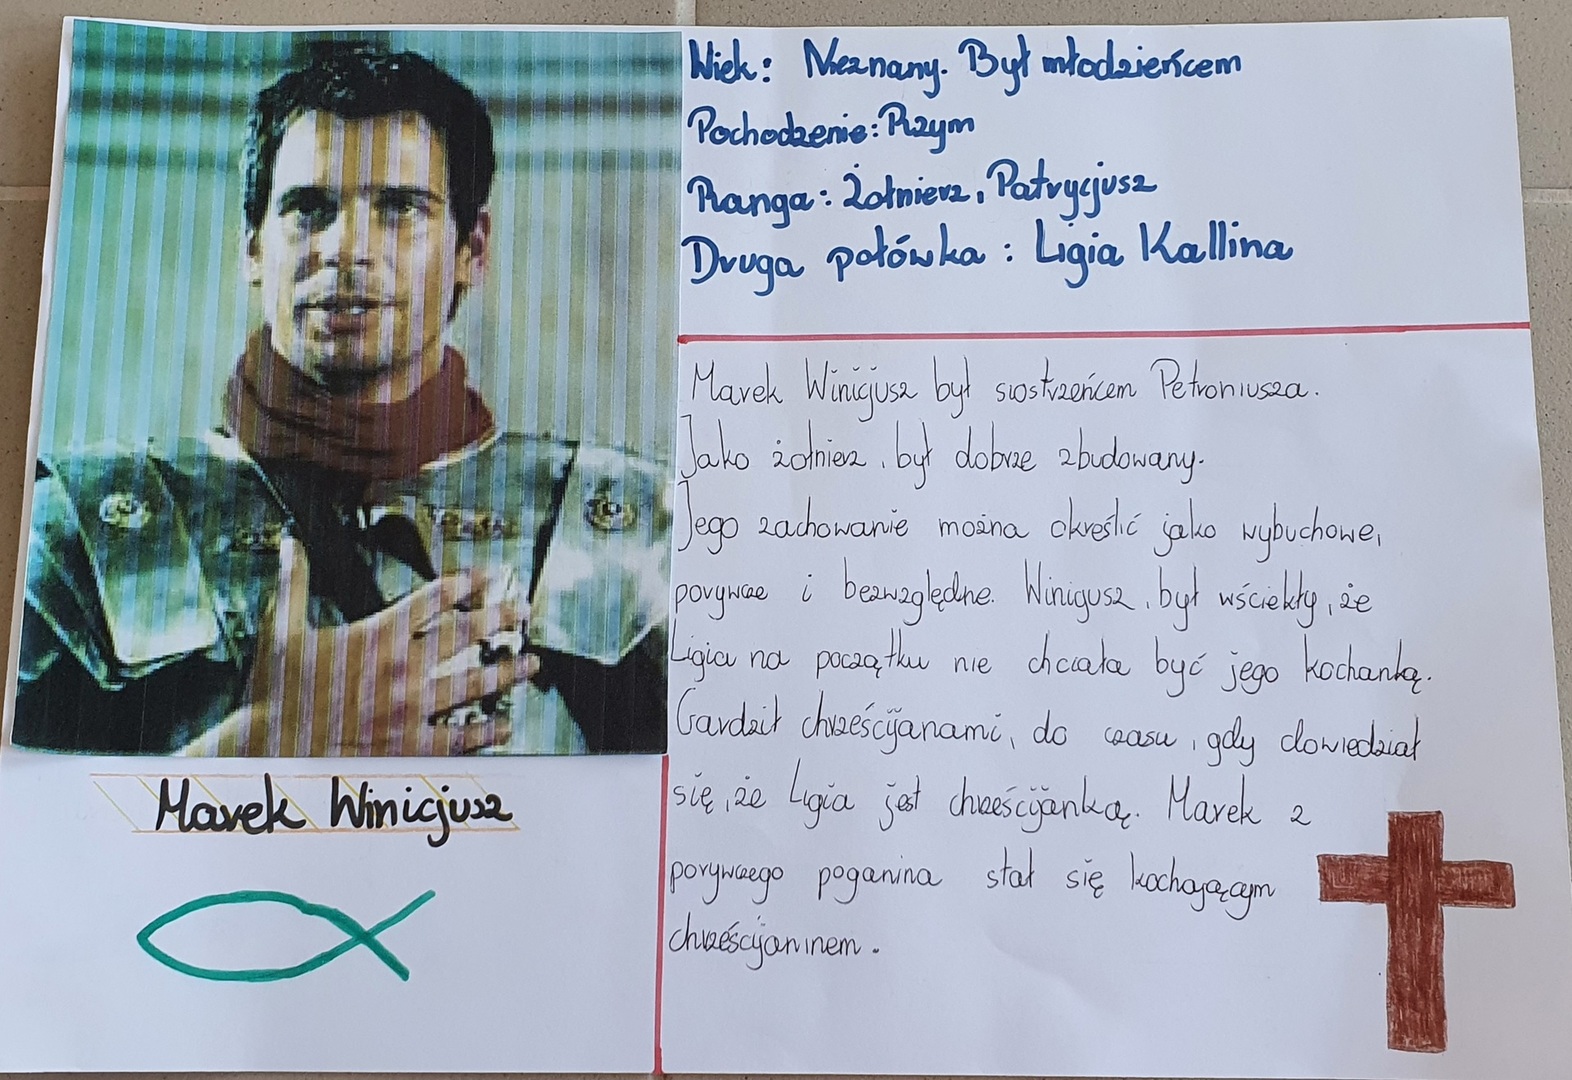 Wiek: Nieznany. Był młodzieńcem
Pochodzenie: Rzym
Ranga: Żołnierz, Patrycjusz
Druga połówka: Ligia Kallina
Marek Winicjusz był siostrzeńcem Petroniusza.
Jako żołnierz, był dobrze zbudowany.
Jego zachowanie można określić jako wybuchowe,
porywcze i bezwzględne. Winicjusz, był wściekły, że
Ligia na początku nie chciała być jego kochanką.
Gardził chrześcijanami, do czasu, gdy dowiedział
się, że Ligia jest chrześcijanką. Marek z
porywczego poganina stał się kochającym
chrześcijaninem.
Marek Winicjusz